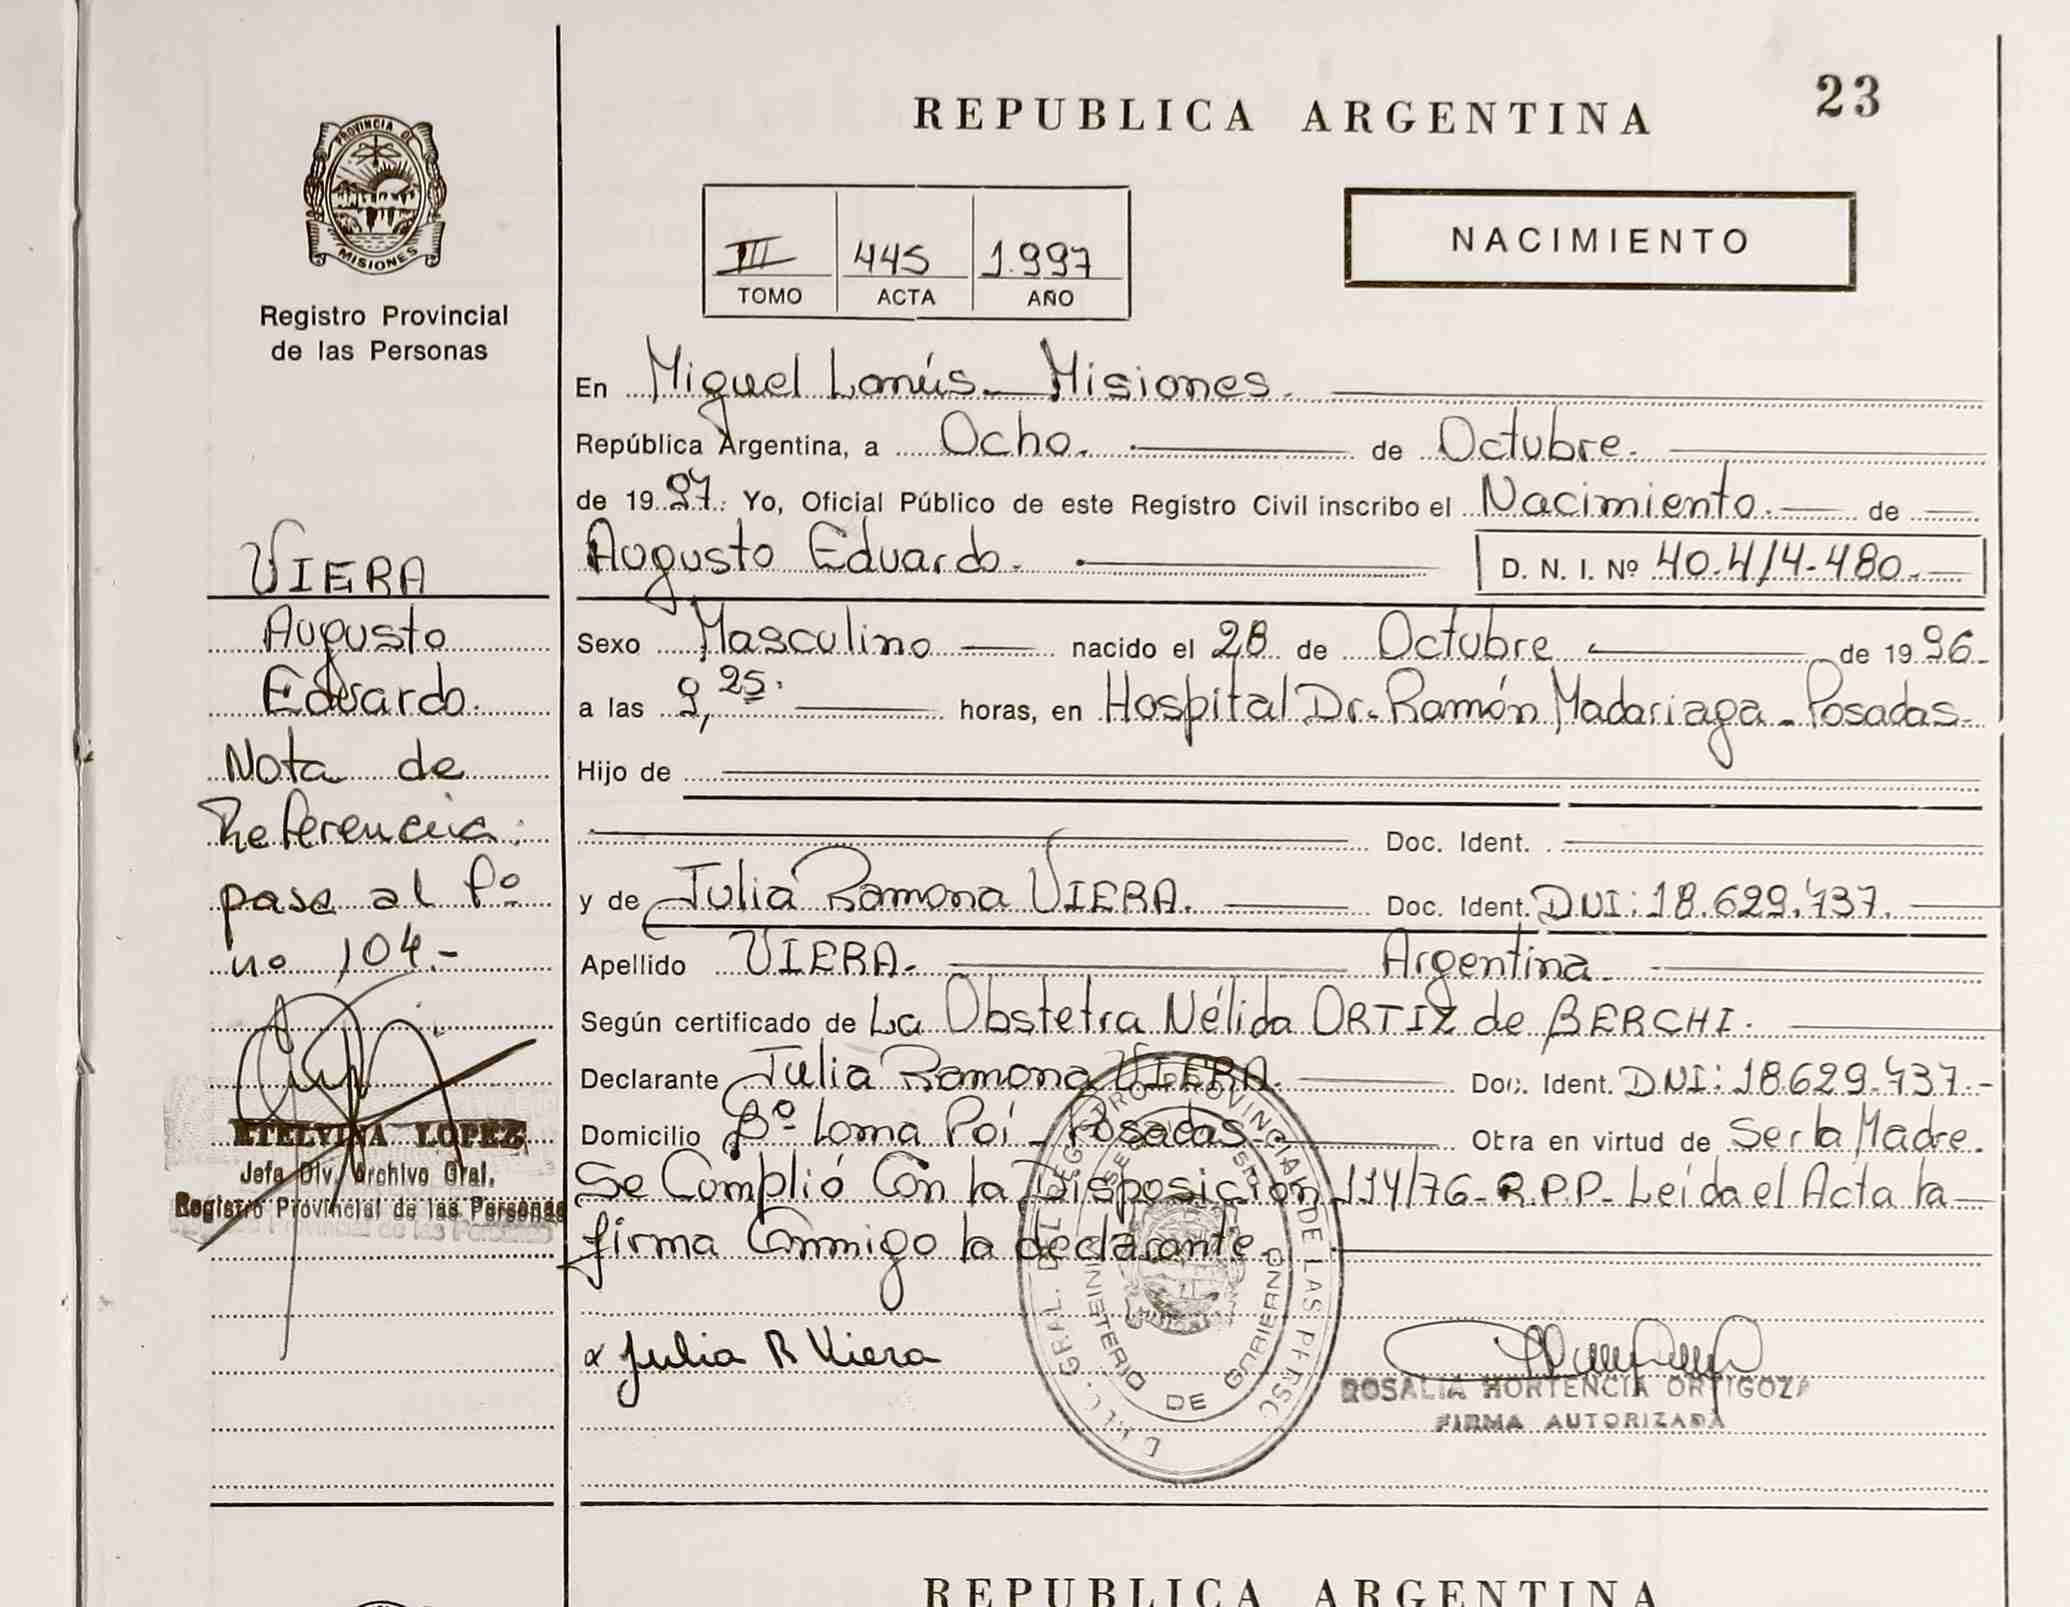 23
REPUBLICA ARGENTINA
PROVINCIA DE
MISIONES
Registro Provincial
de las Personas
III 445 1.997
TOMO ACTA AÑO
NACIMIENTO
En Miguel Lanús - Misiones.
República Argentina, a Ocho. de Octubre.
de 19 97. Yo, Oficial Público de este Registro Civil inscribo el Nacimiento. de
Augusto Eduardo. D. N. I. Nº 40.414.480.-
Sexo Masculino nacido el 28 de Octubre de 19 96.
a las 9,25. horas, en Hospital Dr. Ramón Madariaga - Posadas
Hijo de
Doc. Ident.
y de Julia Ramona VIERA. Doc. Ident. DNI: 18.629.737.
Apellido VIERA. Argentina.
Según certificado de La Obstetra Nélida ORTIZ de BERCHI.
Declarante Julia Ramona VIERA. Doc. Ident. DNI: 18.629.737.-
Domicilio Bº Loma Poí - Posadas Obra en virtud de Ser la Madre.
Se Cumplió Con la Disposición 114/76 - R.P.P - Leída el Acta la
firma Conmigo la declarante.
x Julia R Viera
ROSALIA HORTENCIA ORTIGOZA
FIRMA AUTORIZADA
MINISTERIO DE GOBIERNO
VIERA
Augusto
Eduardo.
Nota de
Referencia:
pase al Fº
nº 104.-
ETELVINA LOPEZ
Jefa Div. Archivo Gral.
Registro Provincial de las Personas
REPUBLICA ARGENTINA